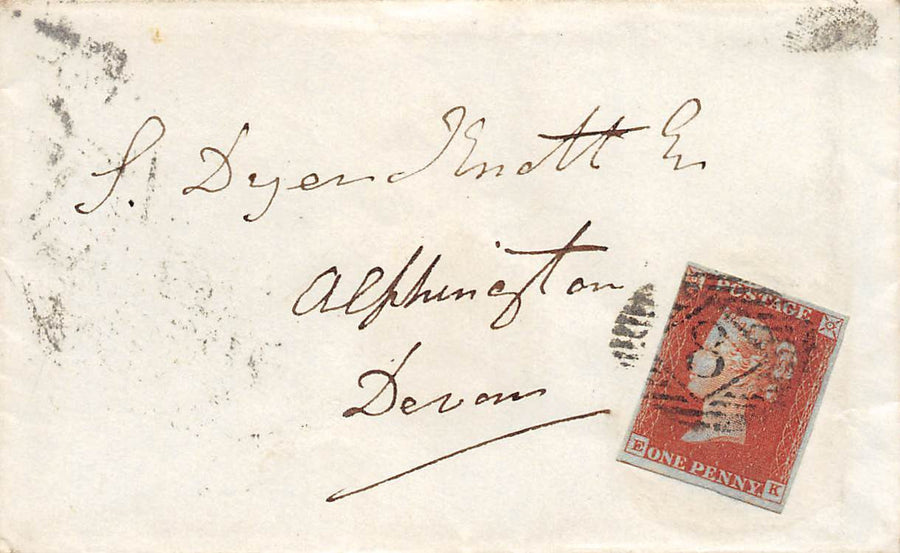 S. Dyer Knott Esq
Alphington
Devon
POSTAGE
E ONE PENNY. K